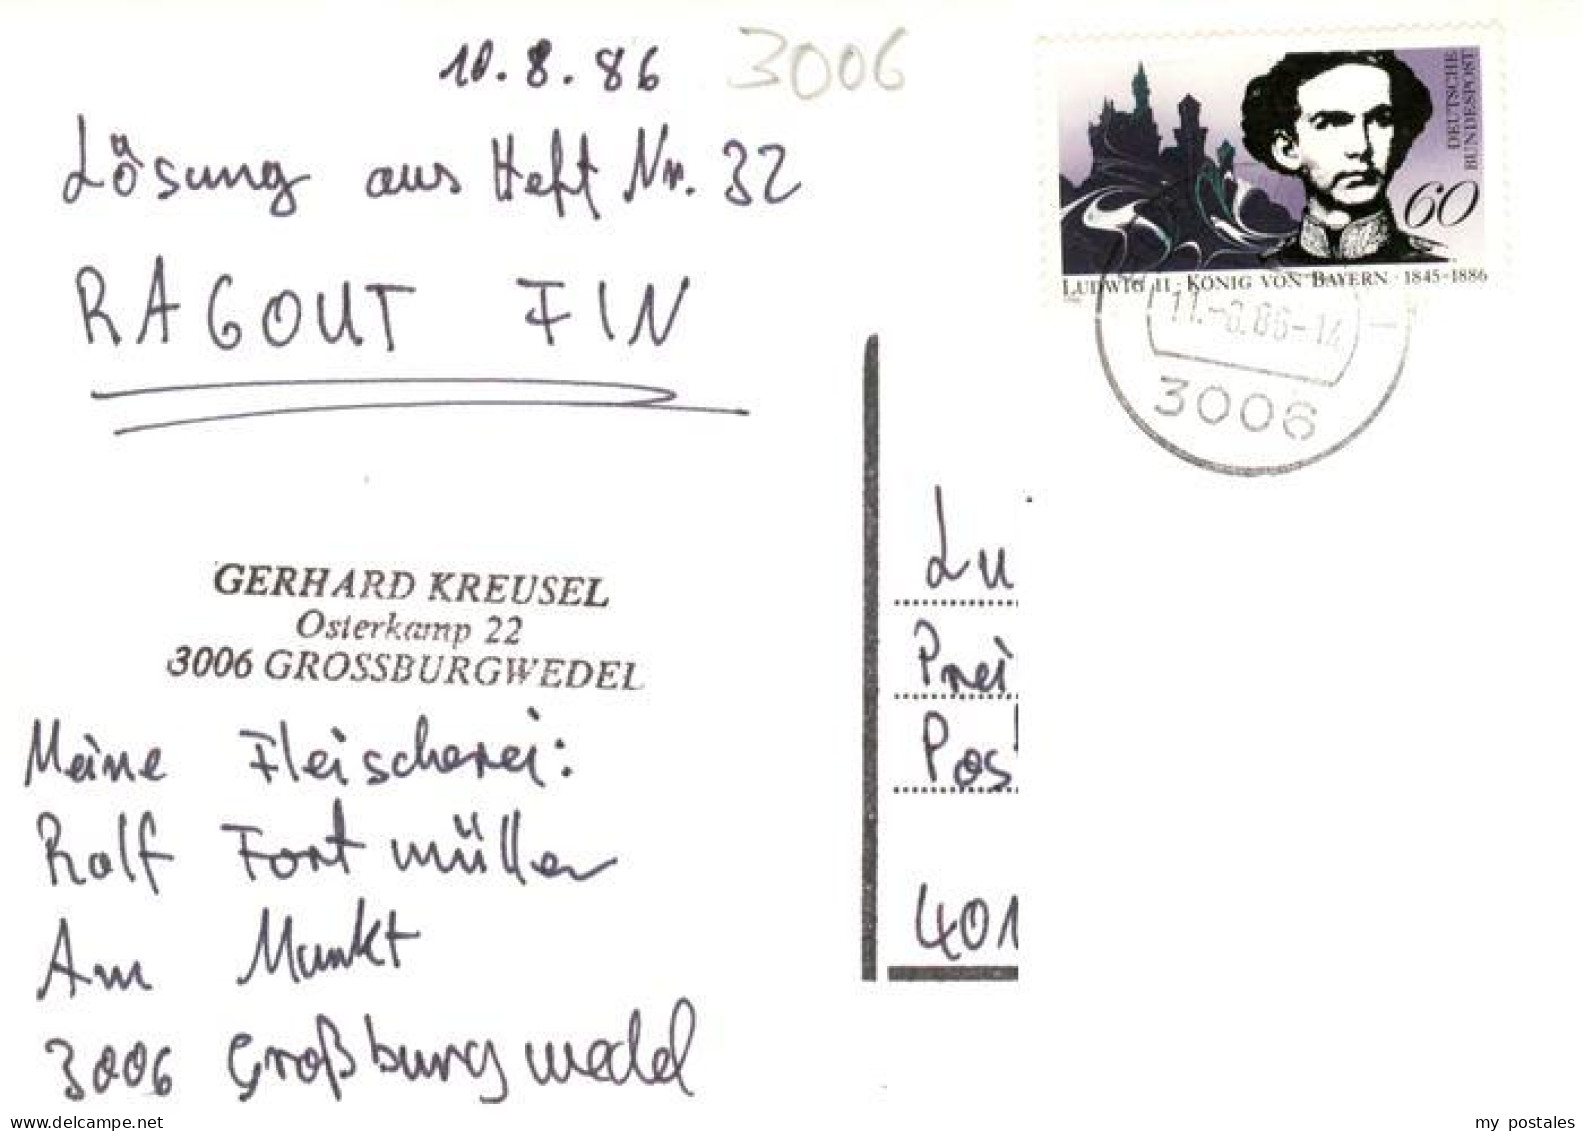 10.8.86
3006
Lösung aus Heft Nr. 32
RAGOUT FIN
DEUTSCHE
BUNDESPOST
60
LUDWIG II · KÖNIG VON BAYERN · 1845-1886
3006
GERHARD KREUSEL
Osterkamp 22
3006 GROSSBURGWEDEL
Meine Fleischerei:
Ralf Fortmüller
Am Markt
3006 Großburgwedel
Lu
Prei
Pos
401
www.delcampe.net
my postales